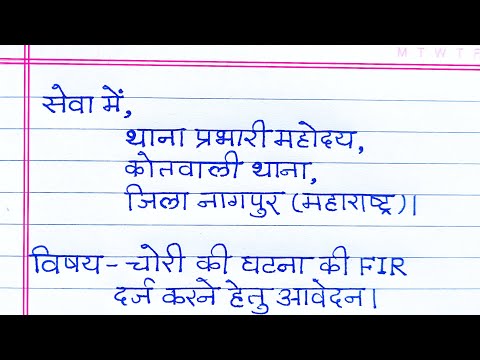 M T W T F
सेवा में,
थाना प्रभारी महोदय,
कोतवाली थाना,
जिला नागपुर (महाराष्ट्र)।
विषय - चोरी की घटना की FIR
दर्ज करने हेतु आवेदन।